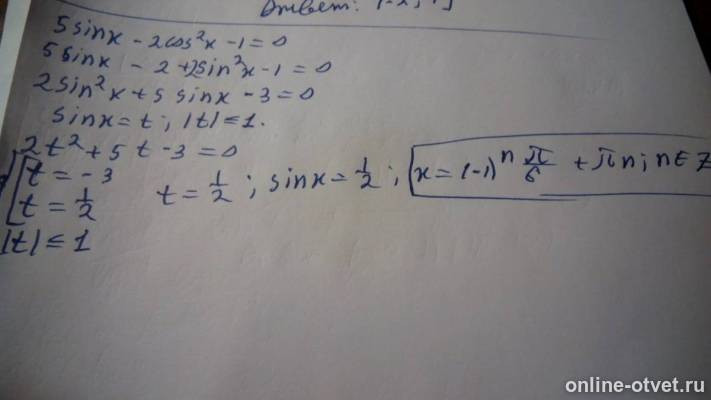 Ответ:
5 sinx - 2cos²x - 1 = 0
5 sinx - 2 + 2sin²x - 1 = 0
2sin²x + 5 sinx - 3 = 0
sinx = t ; |t| ≤ 1.
2t² + 5t - 3 = 0
t = -3
t = 1/2   t = 1/2 ; sinx = 1/2 ; x = (-1)ⁿ π/6 + πn ; n ∈ Z
|t| ≤ 1
online-otvet.ru